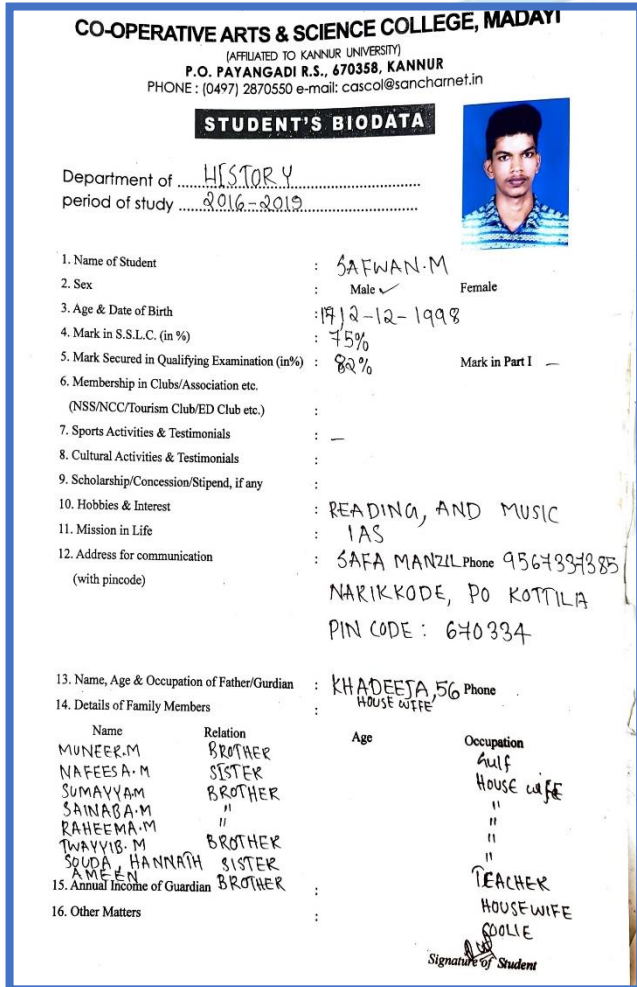 CO-OPERATIVE ARTS & SCIENCE COLLEGE, MADAYI
(AFFILIATED TO KANNUR UNIVERSITY)
P.O. PAYANGADI R.S., 670358, KANNUR
PHONE : (0497) 2870550 e-mail: cascol@sancharnet.in
STUDENT'S BIODATA
Department of ..... HISTORY .....
period of study ..... 2016-2019 .....
1. Name of Student : SAFWAN.M
2. Sex : Male ✓ Female
3. Age & Date of Birth : 17/2-12-1998
4. Mark in S.S.L.C. (in %) : 75%
5. Mark Secured in Qualifying Examination (in%) : 82% Mark in Part I —
6. Membership in Clubs/Association etc.
(NSS/NCC/Tourism Club/ED Club etc.) :
7. Sports Activities & Testimonials : —
8. Cultural Activities & Testimonials :
9. Scholarship/Concession/Stipend, if any :
10. Hobbies & Interest : READING, AND MUSIC
11. Mission in Life : IAS
12. Address for communication : SAFA MANZIL Phone 9567337385
(with pincode) NARIKKODE, PO KOTTILA
PIN CODE : 670334
13. Name, Age & Occupation of Father/Gurdian : KHADEEJA, 56 Phone
14. Details of Family Members : HOUSE WIFE
Name Relation Age Occupation
MUNEER.M BROTHER Gulf
NAFEESA.M SISTER HOUSE wife
SUMAYYA.M BROTHER "
SAINABA.M " "
RAHEEMA.M " "
TWAYYIB.M BROTHER "
SOUDA, HANNATH SISTER TEACHER
AMEEN BROTHER HOUSEWIFE
15. Annual Income of Guardian :
16. Other Matters : COOLIE
Signature of Student